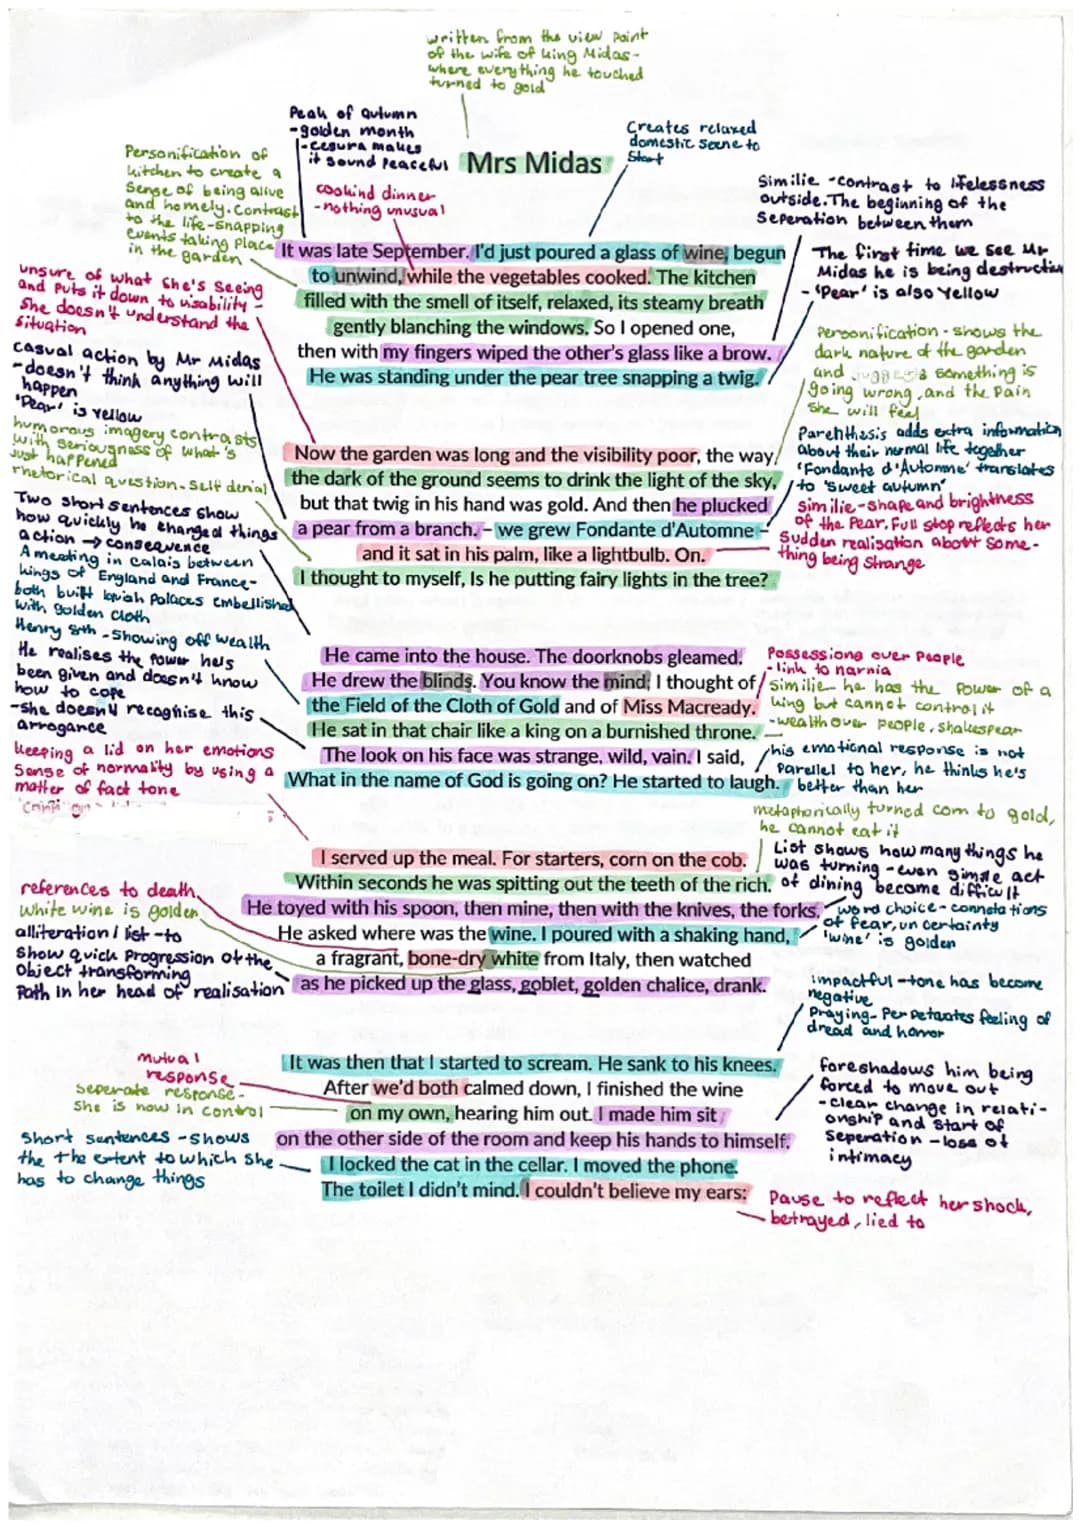 written from the view point
of the wife of king Midas-
where everything he touched
turned to gold
Peak of autumn
-golden month
-cesura makes
it sound peaceful
Creates relaxed
domestic scene to
start
Mrs Midas
Personification of
kitchen to create a
sense of being alive
and homely. Contrast
to the life-snapping
events taking place
in the garden
cookind dinner
-nothing unusual
Similie -contrast to lifelessness
outside. The beginning of the
seperation between them
The first time we see Mr
Midas he is being destructive
- 'Pear' is also yellow
It was late September. I'd just poured a glass of wine, begun
to unwind, while the vegetables cooked. The kitchen
filled with the smell of itself, relaxed, its steamy breath
gently blanching the windows. So I opened one,
then with my fingers wiped the other's glass like a brow.
He was standing under the pear tree snapping a twig.
unsure of what she's seeing
and puts it down to visability -
she doesn't understand the
situation
casual action by Mr Midas
-doesn't think anything will
happen
'Pear' is yellow
humorous imagery contrasts
with seriousness of what's
just happened
rhetorical question-self denial
Personification - shows the
dark nature of the garden
and suggests something is
going wrong, and the pain
she will feel
Parenthasis adds extra information
about their normal life together
'Fondante d'Automne' translates
to 'sweet autumn'
similie-shape and brightness
of the pear. Full stop reflects her
sudden realisation about some-
thing being strange
Now the garden was long and the visibility poor, the way
the dark of the ground seems to drink the light of the sky,
but that twig in his hand was gold. And then he plucked
a pear from a branch. – we grew Fondante d'Automne –
and it sat in his palm, like a lightbulb. On.
I thought to myself, Is he putting fairy lights in the tree?
Two short sentences show
how quickly he changed things
action → consequence
A meeting in calais between
kings of England and France-
both built lavish palaces embellished
with golden cloth
Henry 8th -showing off wealth
He realises the power he's
been given and doesn't know
how to cope
-she doesn't recognise this
arrogance
keeping a lid on her emotions
sense of normality by using a
matter of fact tone
He came into the house. The doorknobs gleamed.
He drew the blinds. You know the mind; I thought of
the Field of the Cloth of Gold and of Miss Macready.
He sat in that chair like a king on a burnished throne.
The look on his face was strange, wild, vain. I said,
What in the name of God is going on? He started to laugh.
Possessions over people
- link to narnia
similie he has the power of a
king but cannot control it
-wealth over people, shakespear
his emotional response is not
parellel to her, he thinks he's
better than her
metaphorically turned corn to gold,
he cannot eat it
List shows how many things he
was turning -even simple act
of dining become difficult
word choice- connotations
of fear, uncertainty
'wine' is golden
I served up the meal. For starters, corn on the cob.
Within seconds he was spitting out the teeth of the rich.
He toyed with his spoon, then mine, then with the knives, the forks.
He asked where was the wine. I poured with a shaking hand,
a fragrant, bone-dry white from Italy, then watched
as he picked up the glass, goblet, golden chalice, drank.
references to death
white wine is golden
alliteration / list -to
show quick progression of the
object transforming
Path in her head of realisation
impactful -tone has become
negative
Praying- perpetuates feeling of
dread and horror
It was then that I started to scream. He sank to his knees.
After we'd both calmed down, I finished the wine
on my own, hearing him out. I made him sit
on the other side of the room and keep his hands to himself.
I locked the cat in the cellar. I moved the phone.
The toilet I didn't mind. I couldn't believe my ears:
mutual
response
seperate response-
she is now in control
short sentences -shows
the the extent to which she
has to change things
foreshadows him being
forced to move out
-clear change in relati-
onship and start of
seperation -loss of
intimacy
Pause to reflect her shock,
betrayed, lied to